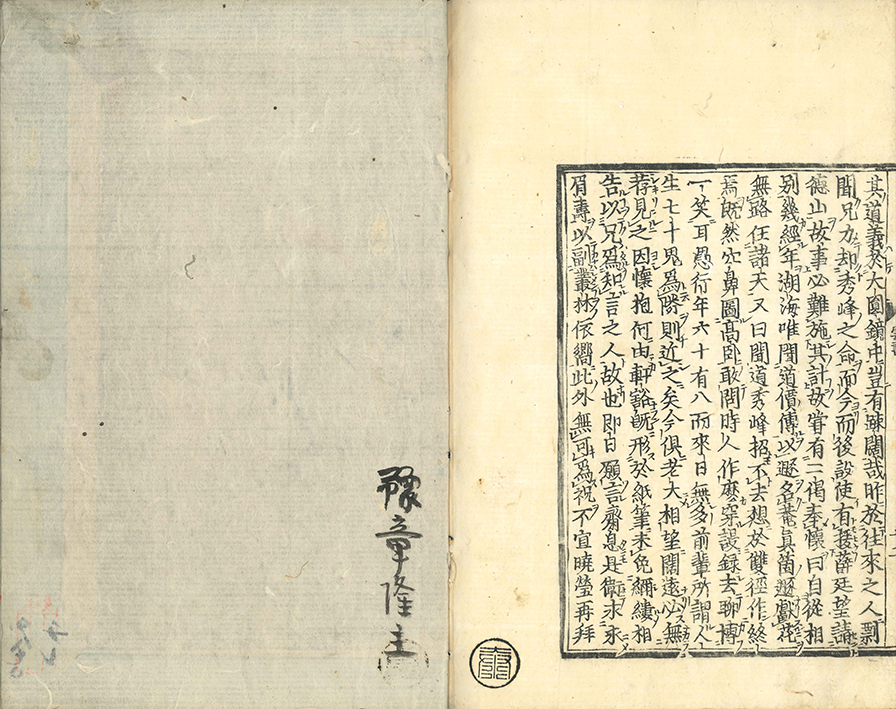 其道義於大圓鏡中豈有疎闊哉昨於往來之人剽
聞兄力却秀峰之命而今而後設使有挺薛廷望請
德山故事必難施其計故甞有二偈奉懷曰自從相
別幾經年湖海唯聞道價傳以遯名菴真箇遯獻花
無路任諸天又曰聞道秀峰招不去想於雙徑作終
焉既然穴鼻圖高卧敢問時人作麼穿謾録去聊博
一笑耳愚行年六十有八而來日無多前輩所謂人
生七十鬼為隣則近之矣今俱老大相望闊遠必無
荐見之因懷抱何由軒豁既形於紙筆未免綢縷相
告以兄為知言之人故也即日願言齋息且衛求永
眉壽以副叢林依嚮此外無可為祝不宣曉瑩再拜
豫章隆主